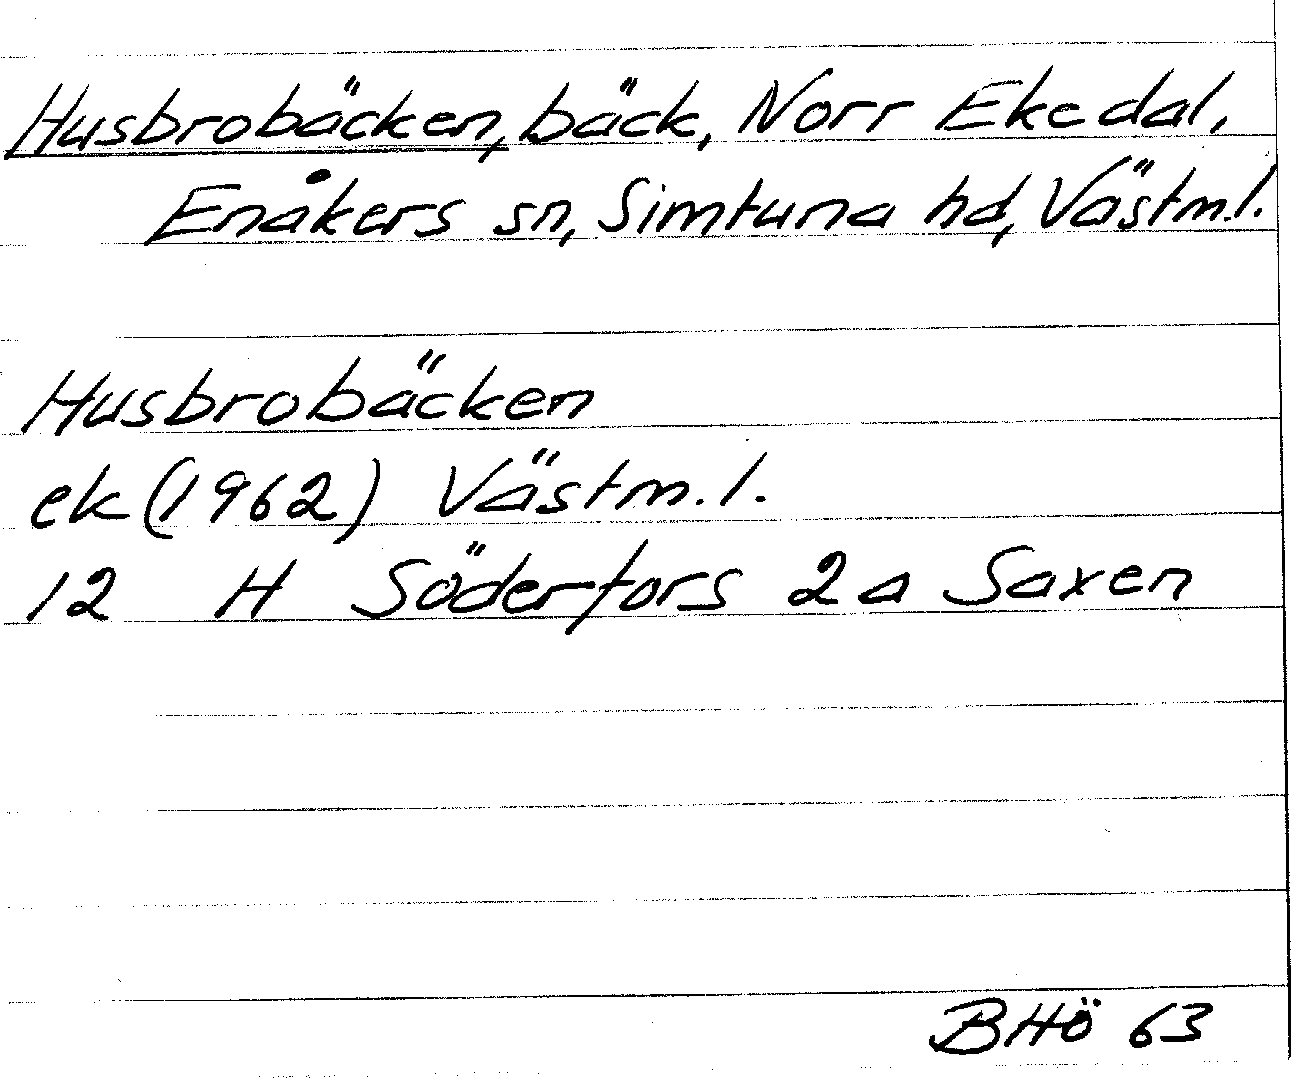 Husbrobäcken, bäck, Norr Ekedal,
Enåkers sn, Simtuna hd, Västm.l.
Husbrobäcken
ek (1962) Västm.l.
12 H Söderfors 2a Saxen
BHÖ 63